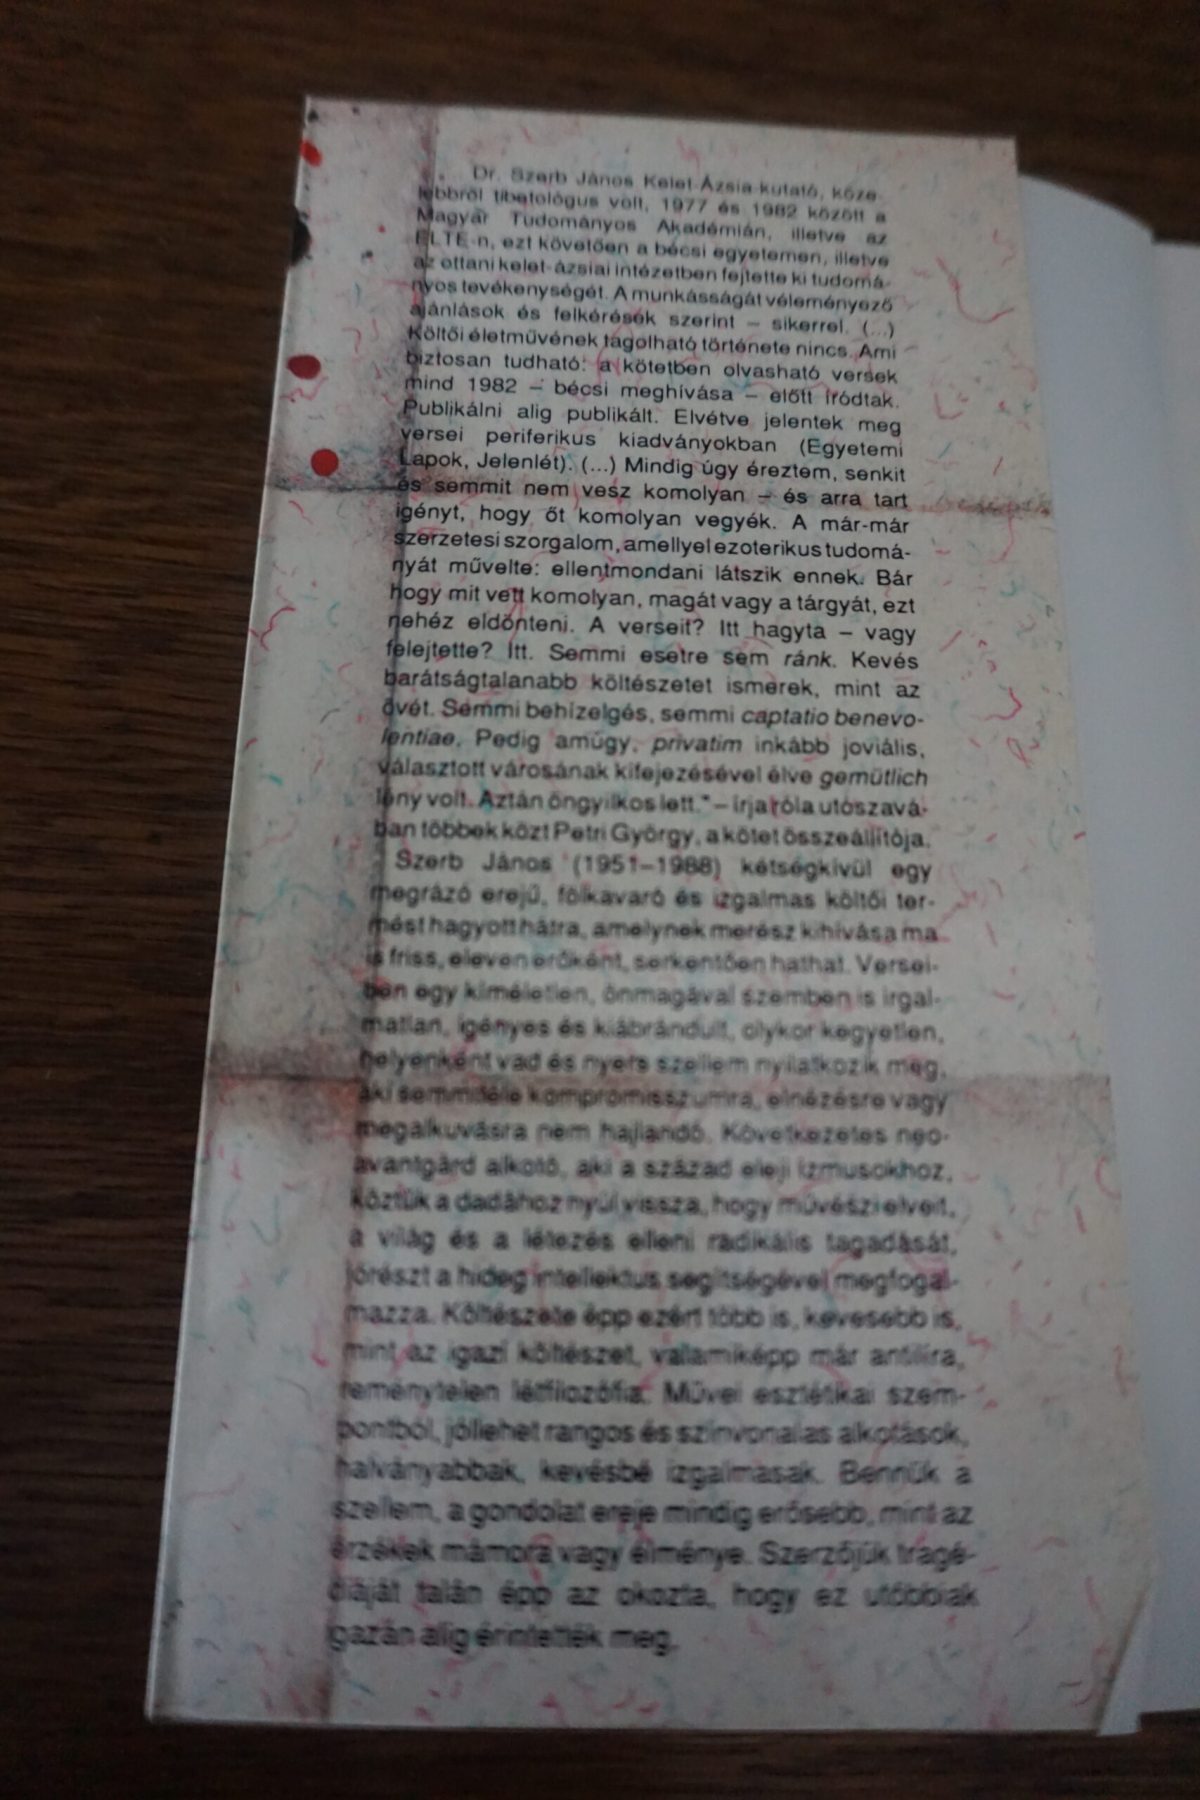 „... Dr. Szerb János Kelet-Ázsia-kutató, köze-
lebbről tibetológus volt, 1977 és 1982 között a
Magyar Tudományos Akadémián, illetve az
ELTE-n, ezt követően a bécsi egyetemen, illetve
az ottani kelet-ázsiai intézetben fejtette ki tudomá-
nyos tevékenységét. A munkásságát véleményező
ajánlások és felkérések szerint – sikerrel. (...)
Költői életművének tagolható története nincs. Ami
biztosan tudható: a kötetben olvasható versek
mind 1982 – bécsi meghívása – előtt íródtak.
Publikálni alig publikált. Elvétve jelentek meg
versei periferikus kiadványokban (Egyetemi
Lapok, Jelenlét). (...) Mindig úgy éreztem, senkit
és semmit nem vesz komolyan – és arra tart
igényt, hogy őt komolyan vegyék. A már-már
szerzetesi szorgalom, amellyel ezoterikus tudomá-
nyát művelte: ellentmondani látszik ennek. Bár
hogy mit vett komolyan, magát vagy a tárgyát, ezt
nehéz eldönteni. A verseit? Itt hagyta – vagy
felejtette? Itt. Semmi esetre sem ránk. Kevés
barátságtalanabb költészetet ismerek, mint az
övét. Semmi behízelgés, semmi captatio benevo-
lentiae. Pedig amúgy, privatim inkább joviális,
választott városának kifejezésével élve gemütlich
lény volt. Aztán öngyilkos lett." – írja róla utószavá-
ban többek közt Petri György, a kötet összeállítója.
Szerb János (1951–1988) kétségkívül egy
megrázó erejű, fölkavaró és izgalmas költői ter-
mést hagyott hátra, amelynek merész kihívása ma
is friss, eleven erőként, serkentően hathat. Versei-
ben egy kíméletlen, önmagával szemben is irgal-
matlan, igényes és kiábrándult, olykor kegyetlen,
helyenként vad és nyers szellem nyilatkozik meg,
aki semmiféle kompromisszumra, elnézésre vagy
megalkuvásra nem hajlandó. Következetes neo-
avantgárd alkotó, aki a század eleji izmusokhoz,
köztük a dadához nyúl vissza, hogy művészi elveit,
a világ és a létezés elleni radikális tagadását,
jórészt a hideg intellektus segítségével megfogal-
mazza. Költészete épp ezért több is, kevesebb is,
mint az igazi költészet, valamiképp már antilíra,
reménytelen létfilozófia. Művei esztétikai szem-
pontból, jóllehet rangos és színvonalas alkotások,
halványabbak, kevésbé izgalmasak. Bennük a
szellem, a gondolat ereje mindig erősebb, mint az
érzékek mámora vagy élménye. Szerzőjük tragé-
diáját talán épp az okozta, hogy ez utóbbiak
igazán alig érintették meg.